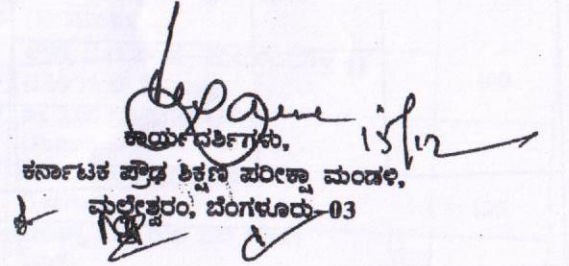 15/12
ಕಾರ್ಯದರ್ಶಿಗಳು,
ಕರ್ನಾಟಕ ಪ್ರೌಢ ಶಿಕ್ಷಣ ಪರೀಕ್ಷಾ ಮಂಡಳಿ,
ಮಲ್ಲೇಶ್ವರಂ, ಬೆಂಗಳೂರು-03